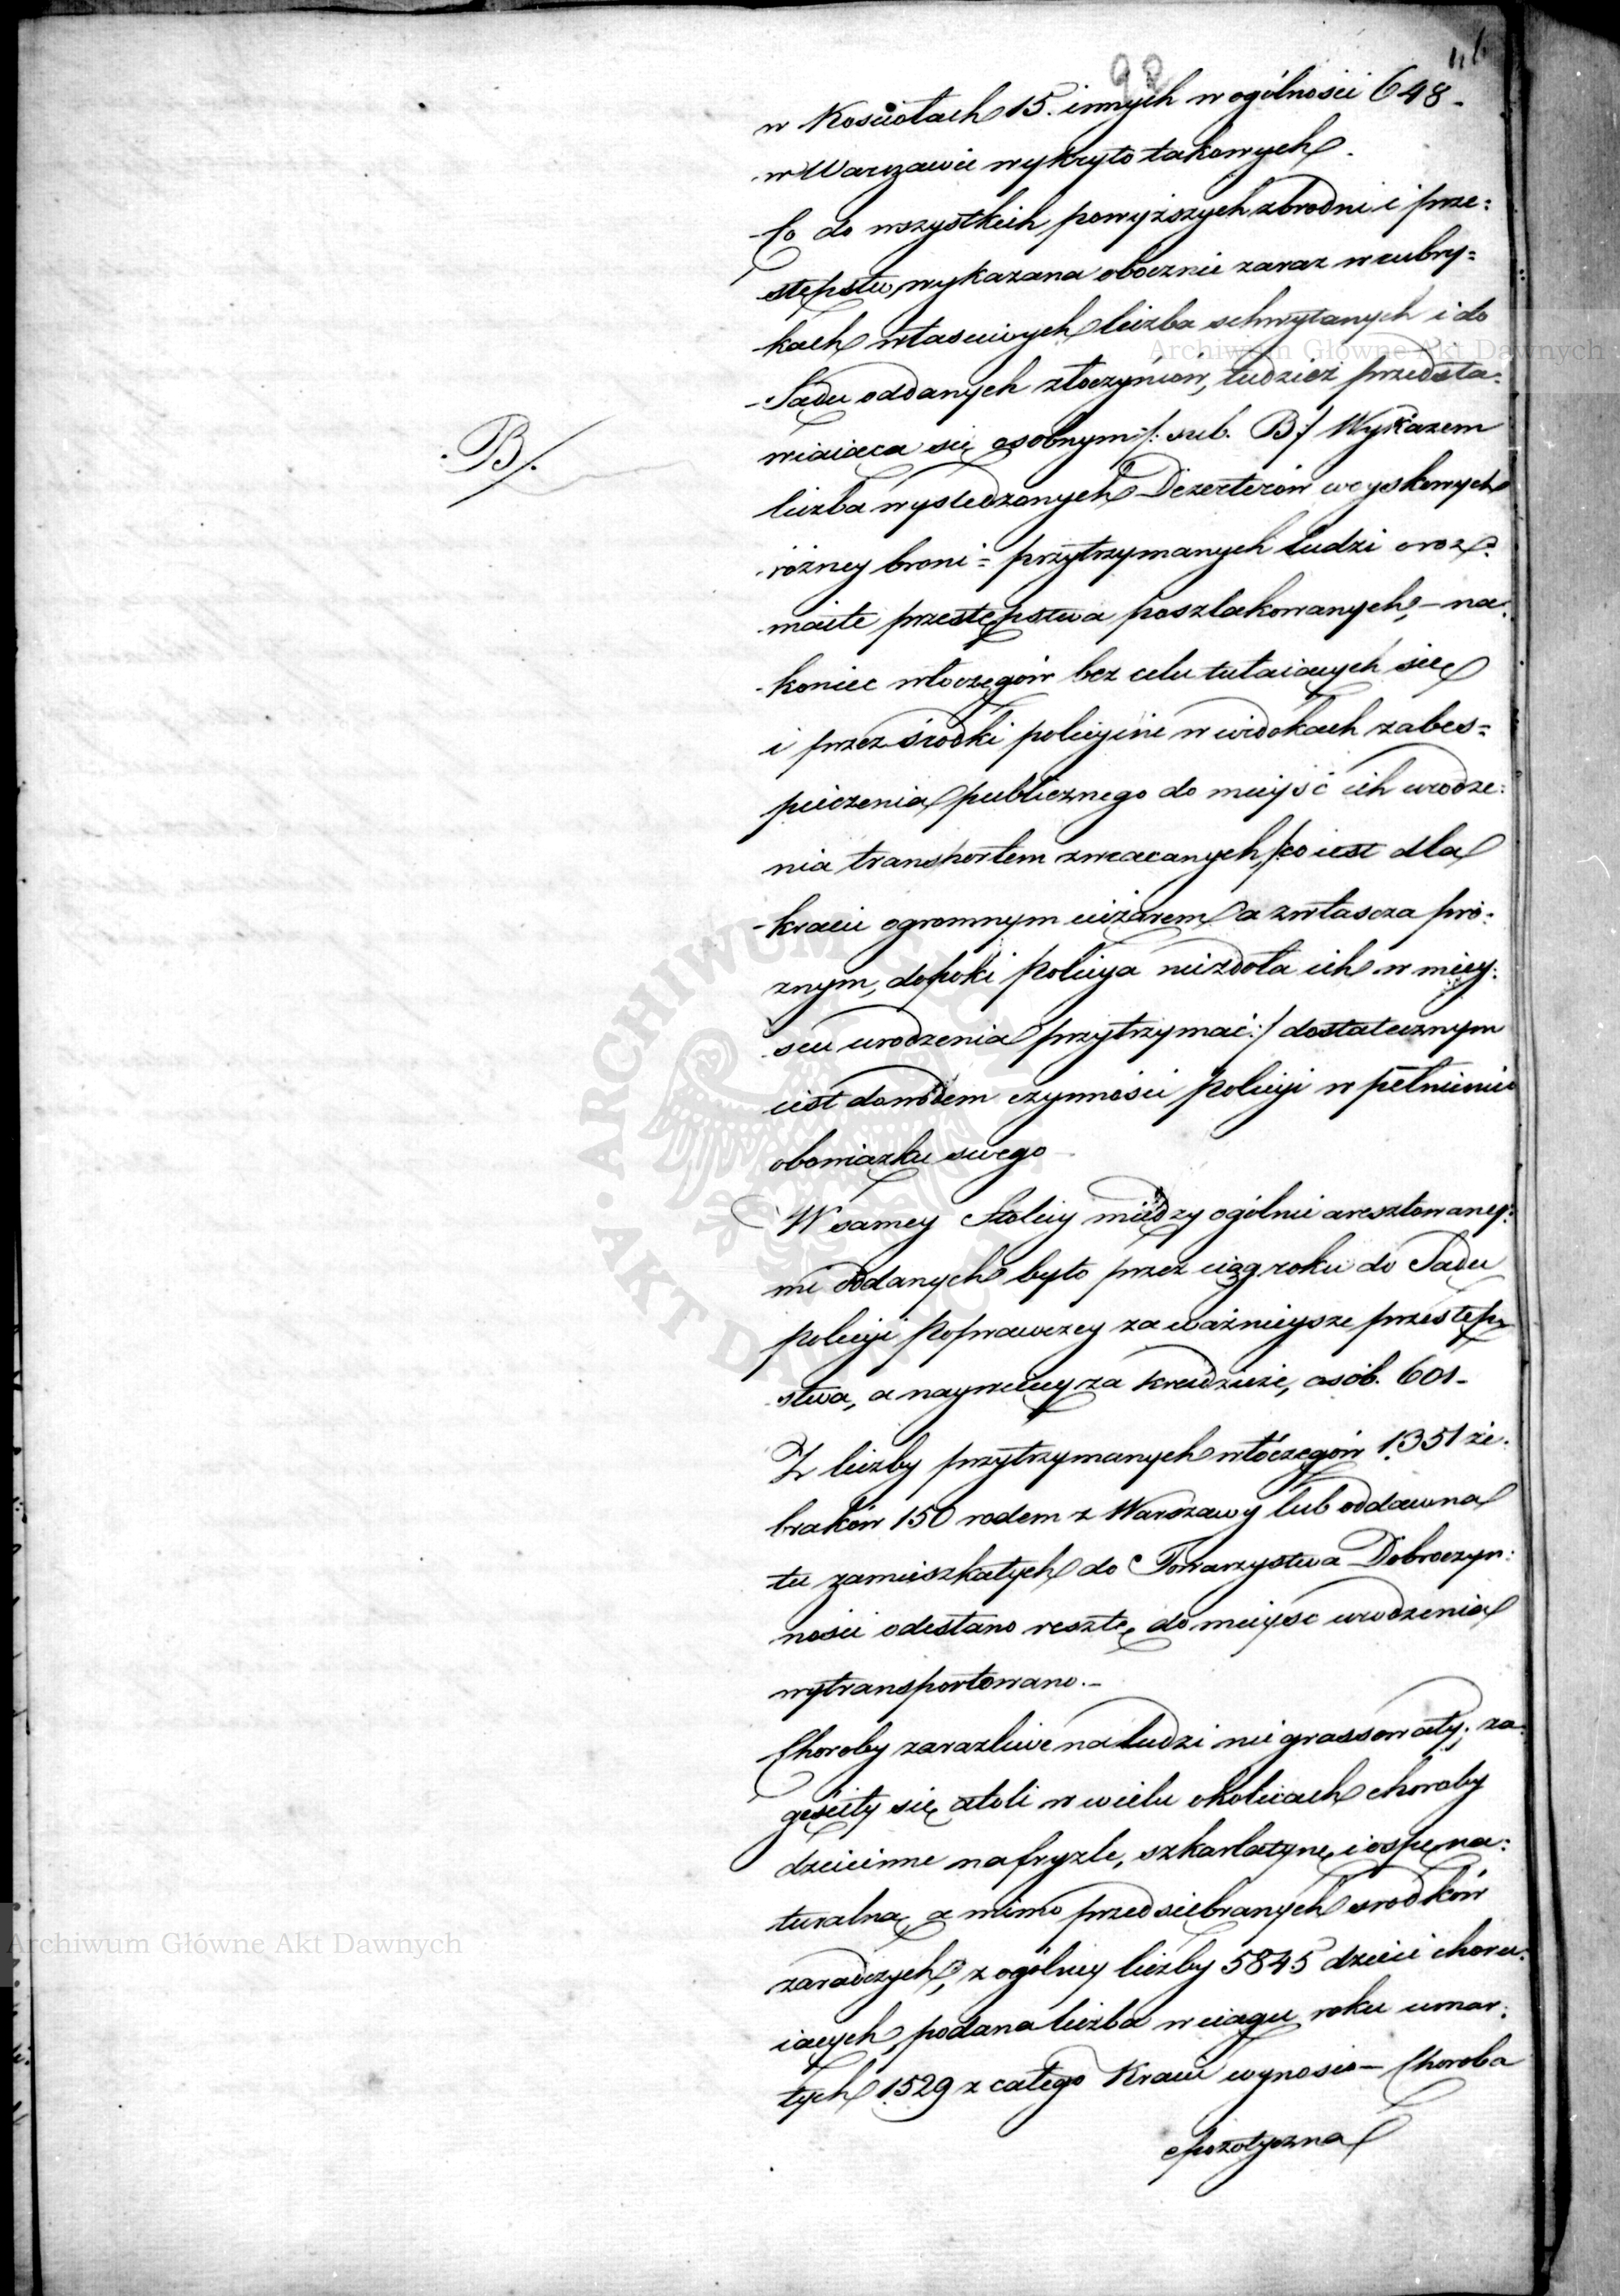 98
116
w Kosciołach 15. innych w ogólnosci 648 -
w Warszawie wykryto takowych.
Co do wszystkich powyższych zbrodni i prze:
stępstw, wykazana obocznie zaraz w rubry=
kach własciwych liczba schwytanych i do
Sądu oddanych złoczyńców, tudzież przedsta:
wiaiąca się osobnym /: sub. B :/ Wykazem
B /.
liczba wysledzonych Dezerterów woyskowych
różney broni = przytrzymanych ludzi o roz=
maite przestępstwa poszlakowanych, - na:
koniec włoczęgów bez celu tułaiących się
i przez środki policyine w widokach zabes=
pieczenia publicznego do mieysć ich urodze:
nia transportem zwracanych /: co iest dla
kraiu ogromnym ciężarem a zwłaszcza pró:
znym, dopoki Policya niezdoła ich w miey:
scu urodzenia przytrzymać :/ dostatecznym
iest dowodem czynnosci Policyi w pełnieniu
obowiązku swego -
W samey Stolicy między ogólnie aresztowany:
mi oddanych było przez ciąg roku do Sądu
Policyi Poprawczey za ważnieysze przestęp=
stwa, a naywięcey za kradzieże, osób. 601 -
Z liczby przytrzymanych włóczęgów 1351 że:
braków 150 rodem z Warszawy lub oddawna
tu zamieszkałych do Towarzystwa Dobroczyn:
nosci odesłano resztę do mieysc urodzenia
wytransportowano. -
Choroby zarazliwe na ludzi nie grassowały; za:
gęsciły się atoli w wielu okolicach choroby
dziecinne na fryzle, szkarlatynę i ospę na:
turalną, a mimo przedsiębranych srodków
zaradczych, z ogólney liczby 5845 dzieci choru:
iących, podana liczba w ciągu roku umar:
łych 1529 z całego Kraiu wynosi - Choroba
epizotyczna
Archiwum Główne Akt Dawnych
Archiwum Główne Akt Dawnych